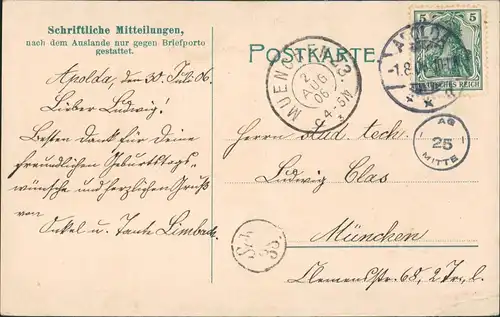 Schriftliche Mitteilungen,
nach dem Auslande nur gegen Briefporto
gestattet.
Apolda, den 30. Juli 06.
Lieber Ludwig!
Besten Dank für Deine
freundlichen Geburtstags-
wünsche und herzlichen Gruß
von
Onkel u. Tante Limbach.
POSTKARTE.
MUENCHEN 33
2
AUG
06
4-5N
APOLDA
-1.8.
5 5
DEUTSCHES REICH
AG
25
MITTE
Herrn stud. tech.
Ludwig Clas
München
Clemensstr. 68, 2 Tr. l.